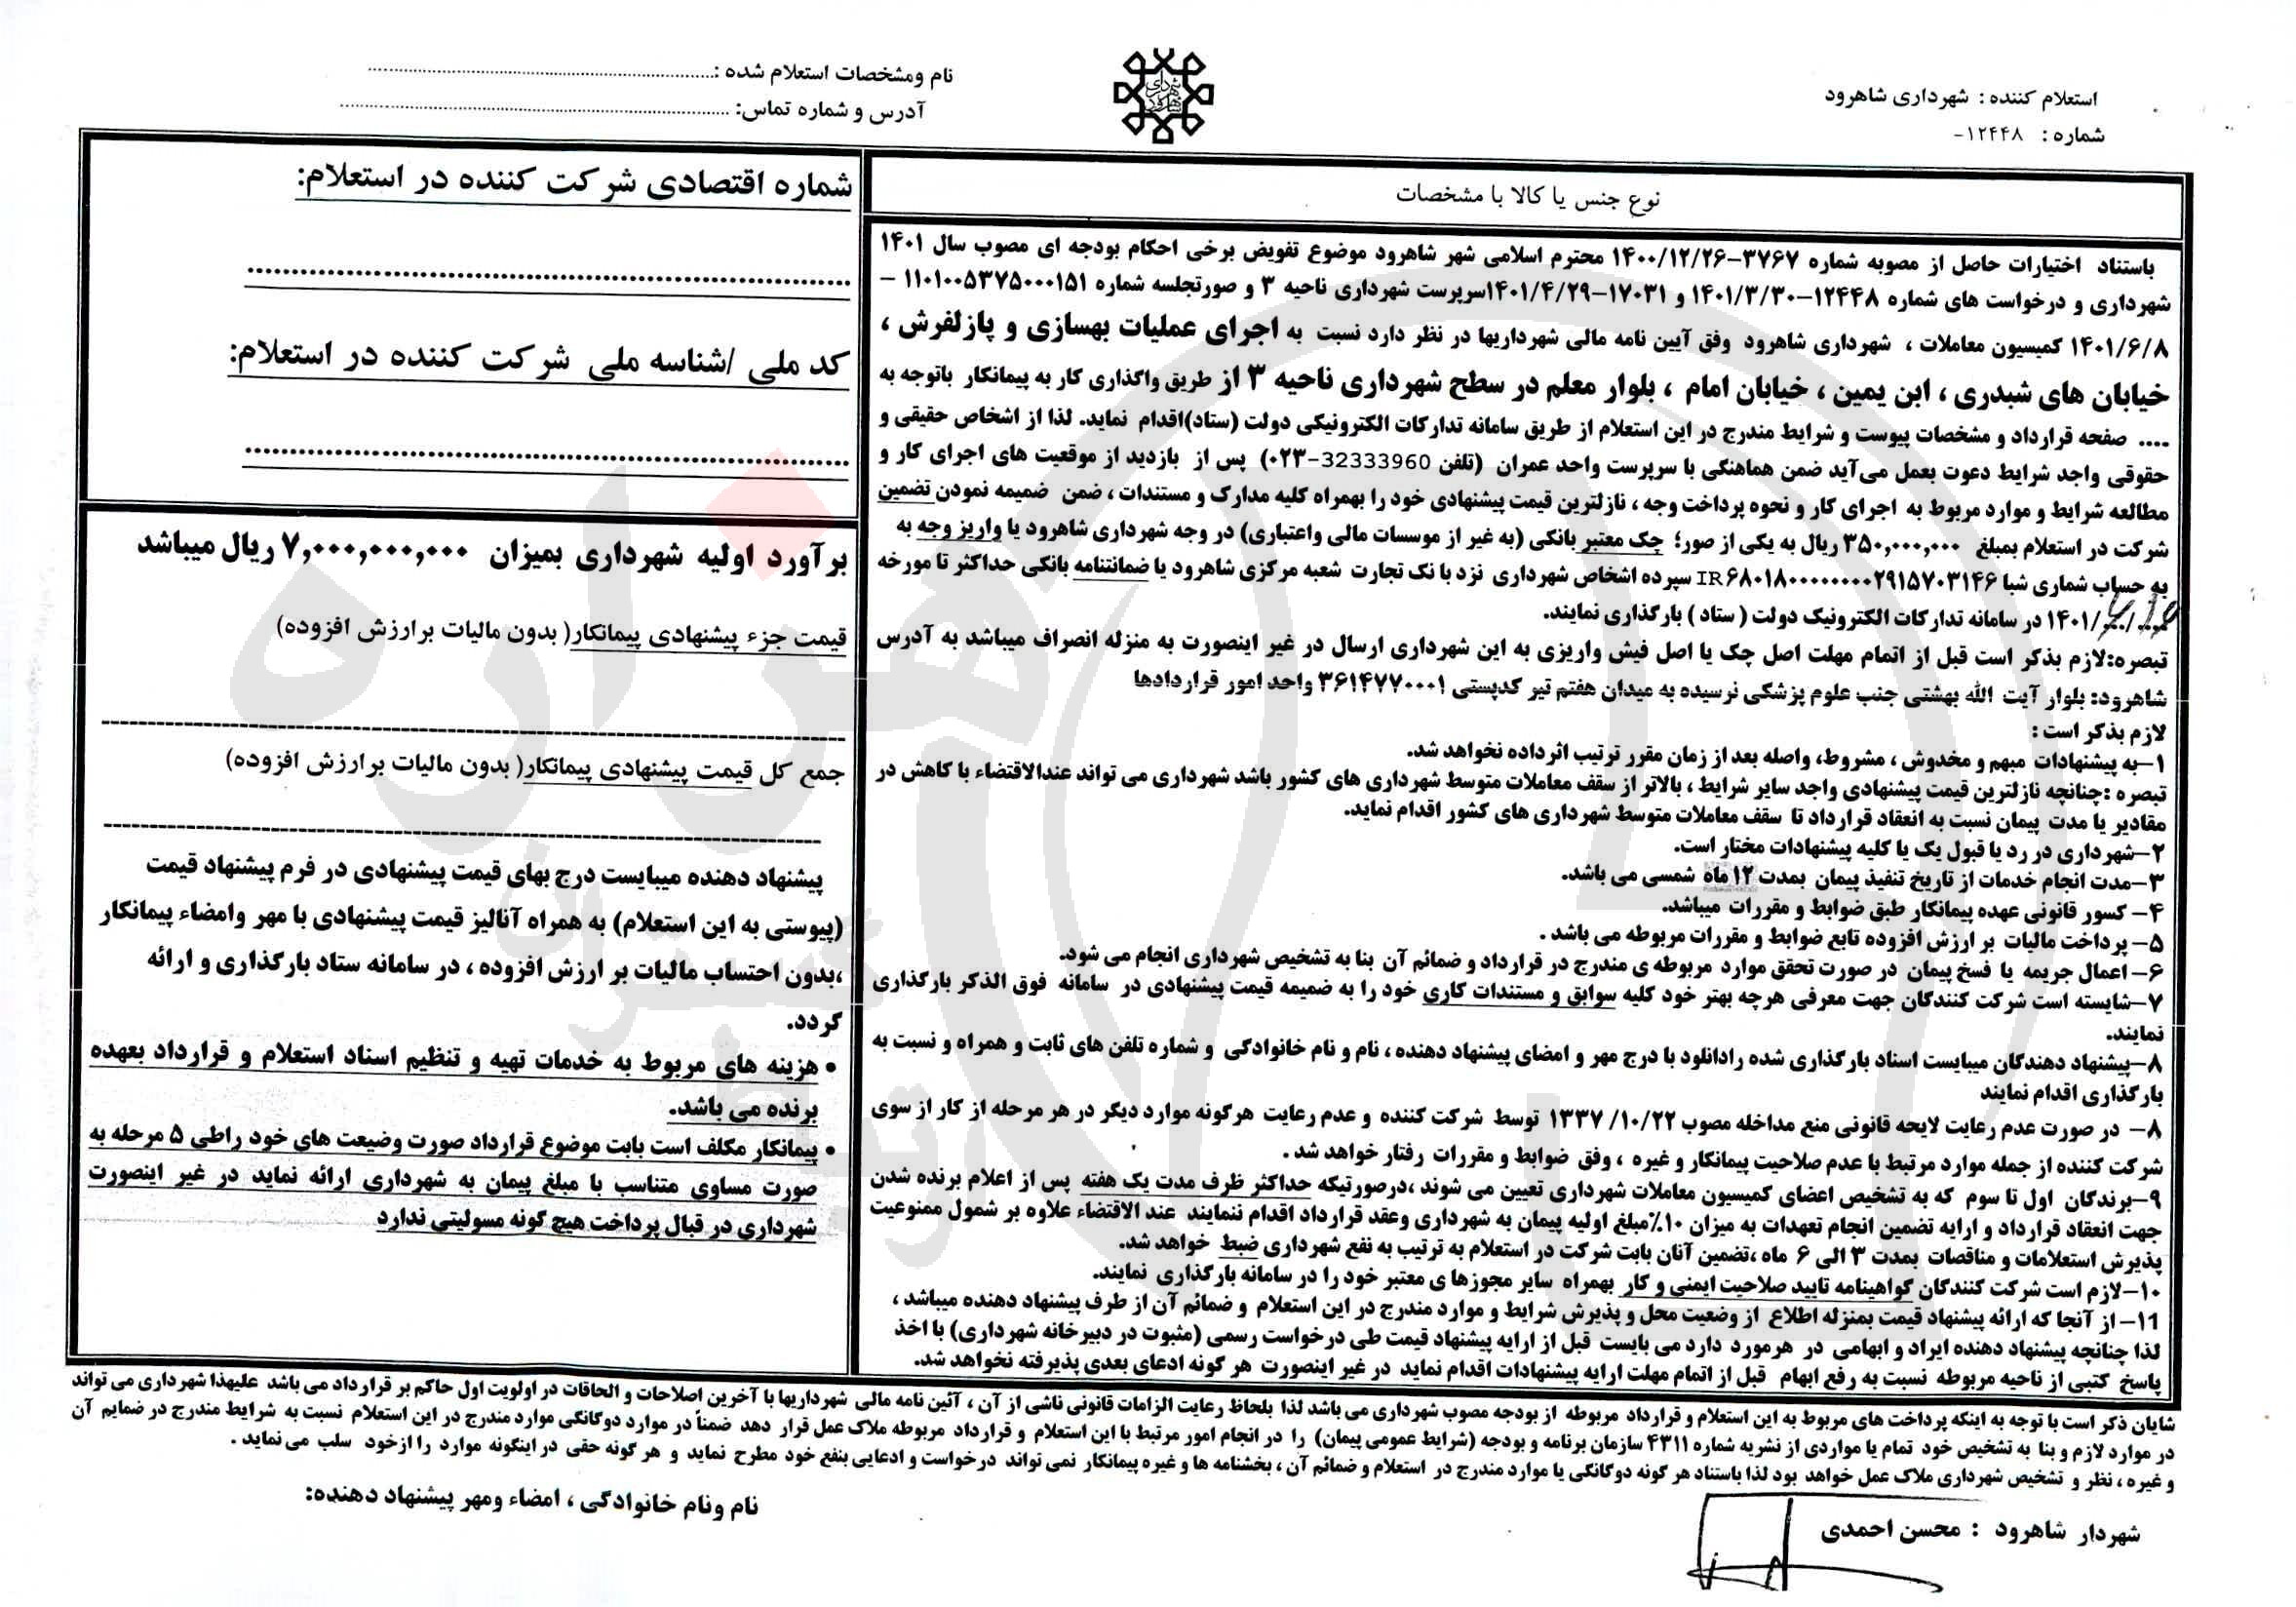 استعلام کننده : شهرداری شاهرود
شماره : ۱۲۴۴۸-
نام ومشخصات استعلام شده :
آدرس و شماره تماس:
نوع جنس یا کالا با مشخصات
باستناد اختیارات حاصل از مصوبه شماره ۳۷۶۷-۱۴۰۰/۱۲/۲۶ محترم اسلامی شهر شاهرود موضوع تفویض برخی احکام بودجه ای مصوب سال ۱۴۰۱
شهرداری و درخواست های شماره ۱۲۴۴۸-۱۴۰۱/۳/۳۰ و ۱۷۰۳۱-۱۴۰۱/۴/۲۹سرپرست شهرداری ناحیه ۳ و صورتجلسه شماره ۱۱۰۱۰۰۵۳۷۵۰۰۰۱۵۱ -
۱۴۰۱/۶/۸ کمیسیون معاملات ، شهرداری شاهرود وفق آیین نامه مالی شهرداریها در نظر دارد نسبت به اجرای عملیات بهسازی و پازلفرش ،
خیابان های شبدری ، ابن یمین ، خیابان امام ، بلوار معلم در سطح شهرداری ناحیه ۳ از طریق واگذاری کار به پیمانکار باتوجه به
.... صفحه قرارداد و مشخصات پیوست و شرایط مندرج در این استعلام از طریق سامانه تدارکات الکترونیکی دولت (ستاد)اقدام نماید. لذا از اشخاص حقیقی و
حقوقی واجد شرایط دعوت بعمل می‌آید ضمن هماهنگی با سرپرست واحد عمران (تلفن 32333960-۰۲۳) پس از بازدید از موقعیت های اجرای کار و
مطالعه شرایط و موارد مربوط به اجرای کار و نحوه پرداخت وجه ، نازلترین قیمت پیشنهادی خود را بهمراه کلیه مدارک و مستندات ، ضمن ضمیمه نمودن تضمین
شرکت در استعلام بمبلغ ۳۵۰,۰۰۰,۰۰۰ ریال به یکی از صور؛ چک معتبر بانکی (به غیر از موسسات مالی واعتباری) در وجه شهرداری شاهرود یا واریز وجه به
به حساب شماری شبا IR۶۸۰۱۸۰۰۰۰۰۰۰۰۲۹۱۵۷۰۳۱۴۶ سپرده اشخاص شهرداری نزد بانک تجارت شعبه مرکزی شاهرود یا ضمانتنامه بانکی حداکثر تا مورخه
۱۴۰۱/ در سامانه تدارکات الکترونیک دولت ( ستاد ) بارگذاری نمایند.
تبصره:لازم بذکر است قبل از اتمام مهلت اصل چک یا اصل فیش واریزی به این شهرداری ارسال در غیر اینصورت به منزله انصراف میباشد به آدرس
شاهرود: بلوار آیت الله بهشتی جنب علوم پزشکی نرسیده به میدان هفتم تیر کدپستی ۳۶۱۴۷۷۰۰۰۱ واحد امور قراردادها
لازم بذکر است :
۱-به پیشنهادات مبهم و مخدوش ، مشروط، واصله بعد از زمان مقرر ترتیب اثرداده نخواهد شد.
تبصره :چنانچه نازلترین قیمت پیشنهادی واجد سایر شرایط ، بالاتر از سقف معاملات متوسط شهرداری های کشور باشد شهرداری می تواند عندالاقتضاء با کاهش در
مقادیر یا مدت پیمان نسبت به انعقاد قرارداد تا سقف معاملات متوسط شهرداری های کشور اقدام نماید.
۲-شهرداری در رد یا قبول یک یا کلیه پیشنهادات مختار است.
۳-مدت انجام خدمات از تاریخ تنفیذ پیمان بمدت ۱۲ ماه شمسی می باشد.
۴- کسور قانونی عهده پیمانکار طبق ضوابط و مقررات میباشد.
۵- پرداخت مالیات بر ارزش افزوده تابع ضوابط و مقررات مربوطه می باشد .
۶- اعمال جریمه یا فسخ پیمان در صورت تحقق موارد مربوطه ی مندرج در قرارداد و ضمائم آن بنا به تشخیص شهرداری انجام می شود.
۷-شایسته است شرکت کنندگان جهت معرفی هرچه بهتر خود کلیه سوابق و مستندات کاری خود را به ضمیمه قیمت پیشنهادی در سامانه فوق الذکر بارگذاری
نمایند.
۸-پیشنهاد دهندگان میبایست اسناد بارگذاری شده رادانلود با درج مهر و امضای پیشنهاد دهنده ، نام و نام خانوادگی و شماره تلفن های ثابت و همراه و نسبت به
بارگذاری اقدام نمایند
۸- در صورت عدم رعایت لایحه قانونی منع مداخله مصوب ۱۳۳۷/۱۰/۲۲ توسط شرکت کننده و عدم رعایت هرگونه موارد دیگر در هر مرحله از کار از سوی
شرکت کننده از جمله موارد مرتبط با عدم صلاحیت پیمانکار و غیره ، وفق ضوابط و مقررات رفتار خواهد شد .
۹-برندگان اول تا سوم که به تشخیص اعضای کمیسیون معاملات شهرداری تعیین می شوند ،درصورتیکه حداکثر ظرف مدت یک هفته پس از اعلام برنده شدن
جهت انعقاد قرارداد و ارایه تضمین انجام تعهدات به میزان ۱۰٪مبلغ اولیه پیمان به شهرداری وعقد قرارداد اقدام ننمایند عند الاقتضاء علاوه بر شمول ممنوعیت
پذیرش استعلامات و مناقصات بمدت ۳ الی ۶ ماه ،تضمین آنان بابت شرکت در استعلام به ترتیب به نفع شهرداری ضبط خواهد شد.
۱۰-لازم است شرکت کنندگان گواهینامه تایید صلاحیت ایمنی و کار بهمراه سایر مجوزها ی معتبر خود را در سامانه بارگذاری نمایند.
۱۱- از آنجا که ارائه پیشنهاد قیمت بمنزله اطلاع از وضعیت محل و پذیرش شرایط و موارد مندرج در این استعلام و ضمائم آن از طرف پیشنهاد دهنده میباشد ،
لذا چنانچه پیشنهاد دهنده ایراد و ابهامی در هرمورد دارد می بایست قبل از ارایه پیشنهاد قیمت طی درخواست رسمی (مثبوت در دبیرخانه شهرداری) با اخذ
پاسخ کتبی از ناحیه مربوطه نسبت به رفع ابهام قبل از اتمام مهلت ارایه پیشنهادات اقدام نماید در غیر اینصورت هر گونه ادعای بعدی پذیرفته نخواهد شد.
شماره اقتصادی شرکت کننده در استعلام:
کد ملی /شناسه ملی شرکت کننده در استعلام:
برآورد اولیه شهرداری بمیزان ۷,۰۰۰,۰۰۰,۰۰۰ ریال میباشد
قیمت جزء پیشنهادی پیمانکار( بدون مالیات برارزش افزوده)
جمع کل قیمت پیشنهادی پیمانکار( بدون مالیات برارزش افزوده)
پیشنهاد دهنده میبایست درج بهای قیمت پیشنهادی در فرم پیشنهاد قیمت
(پیوستی به این استعلام) به همراه آنالیز قیمت پیشنهادی با مهر وامضاء پیمانکار
،بدون احتساب مالیات بر ارزش افزوده ، در سامانه ستاد بارگذاری و ارائه
گردد.
• هزینه های مربوط به خدمات تهیه و تنظیم اسناد استعلام و قرارداد بعهده
برنده می باشد.
• پیمانکار مکلف است بابت موضوع قرارداد صورت وضیعت های خود راطی ۵ مرحله به
صورت مساوی متناسب با مبلغ پیمان به شهرداری ارائه نماید در غیر اینصورت
شهرداری در قبال پرداخت هیچ گونه مسولیتی ندارد
شایان ذکر است با توجه به اینکه پرداخت های مربوط به این استعلام و قرارداد مربوطه از بودجه مصوب شهرداری می باشد لذا بلحاظ رعایت الزامات قانونی ناشی از آن ، آئین نامه مالی شهرداریها با آخرین اصلاحات و الحاقات در اولویت اول حاکم بر قرارداد می باشد علیهذا شهرداری می تواند
در موارد لازم و بنا به تشخیص خود تمام یا مواردی از نشریه شماره ۴۳۱۱ سازمان برنامه و بودجه (شرایط عمومی پیمان) را در انجام امور مرتبط با این استعلام و قرارداد مربوطه ملاک عمل قرار دهد ضمناً در موارد دوگانگی موارد مندرج در این استعلام نسبت به شرایط مندرج در ضمایم آن
و غیره ، نظر و تشخیص شهرداری ملاک عمل خواهد بود لذا باستناد هر گونه دوگانگی یا موارد مندرج در استعلام و ضمائم آن ، بخشنامه ها و غیره پیمانکار نمی تواند درخواست و ادعایی بنفع خود مطرح نماید و هر گونه حقی در اینگونه موارد را ازخود سلب می نماید .
شهردار شاهرود : محسن احمدی
نام ونام خانوادگی ، امضاء ومهر پیشنهاد دهنده: